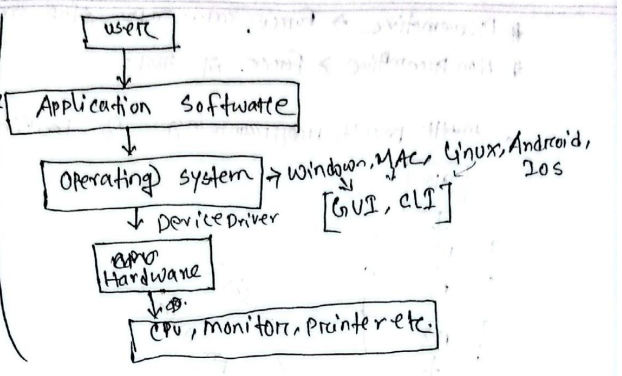 user
Application Software
Operating system → Windown, MAC, Linux, Android,
Ios
[GUI, CLI]
Device Driver
Hardware
CPU, monitor, printer etc.